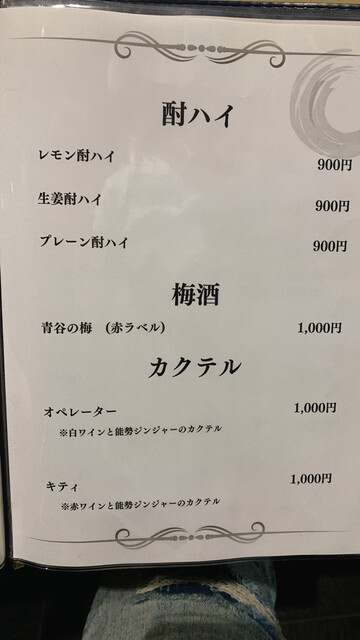 酎ハイ
レモン酎ハイ 900円
生姜酎ハイ 900円
プレーン酎ハイ 900円
梅酒
青谷の梅 (赤ラベル) 1,000円
カクテル
オペレーター 1,000円
※白ワインと能勢ジンジャーのカクテル
キティ 1,000円
※赤ワインと能勢ジンジャーのカクテル